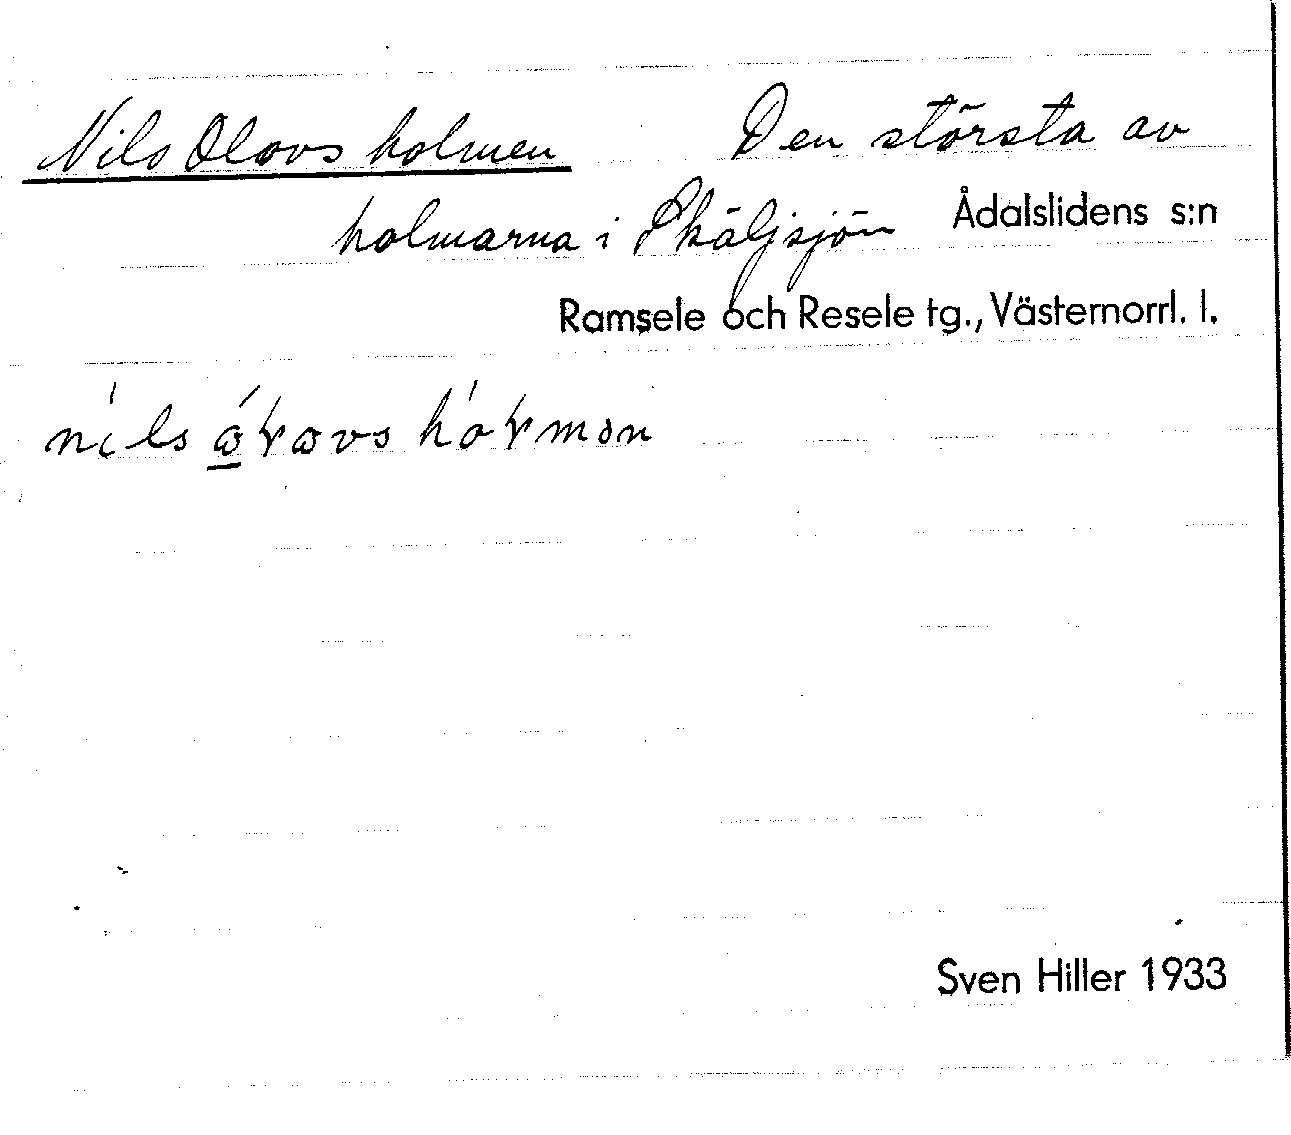 Nils Olovs holmen Den största av
holmarna i Skäljsjön Ådalslidens s:n
Ramsele och Resele tg., Västernorrl. l.
Sven Hiller 1933